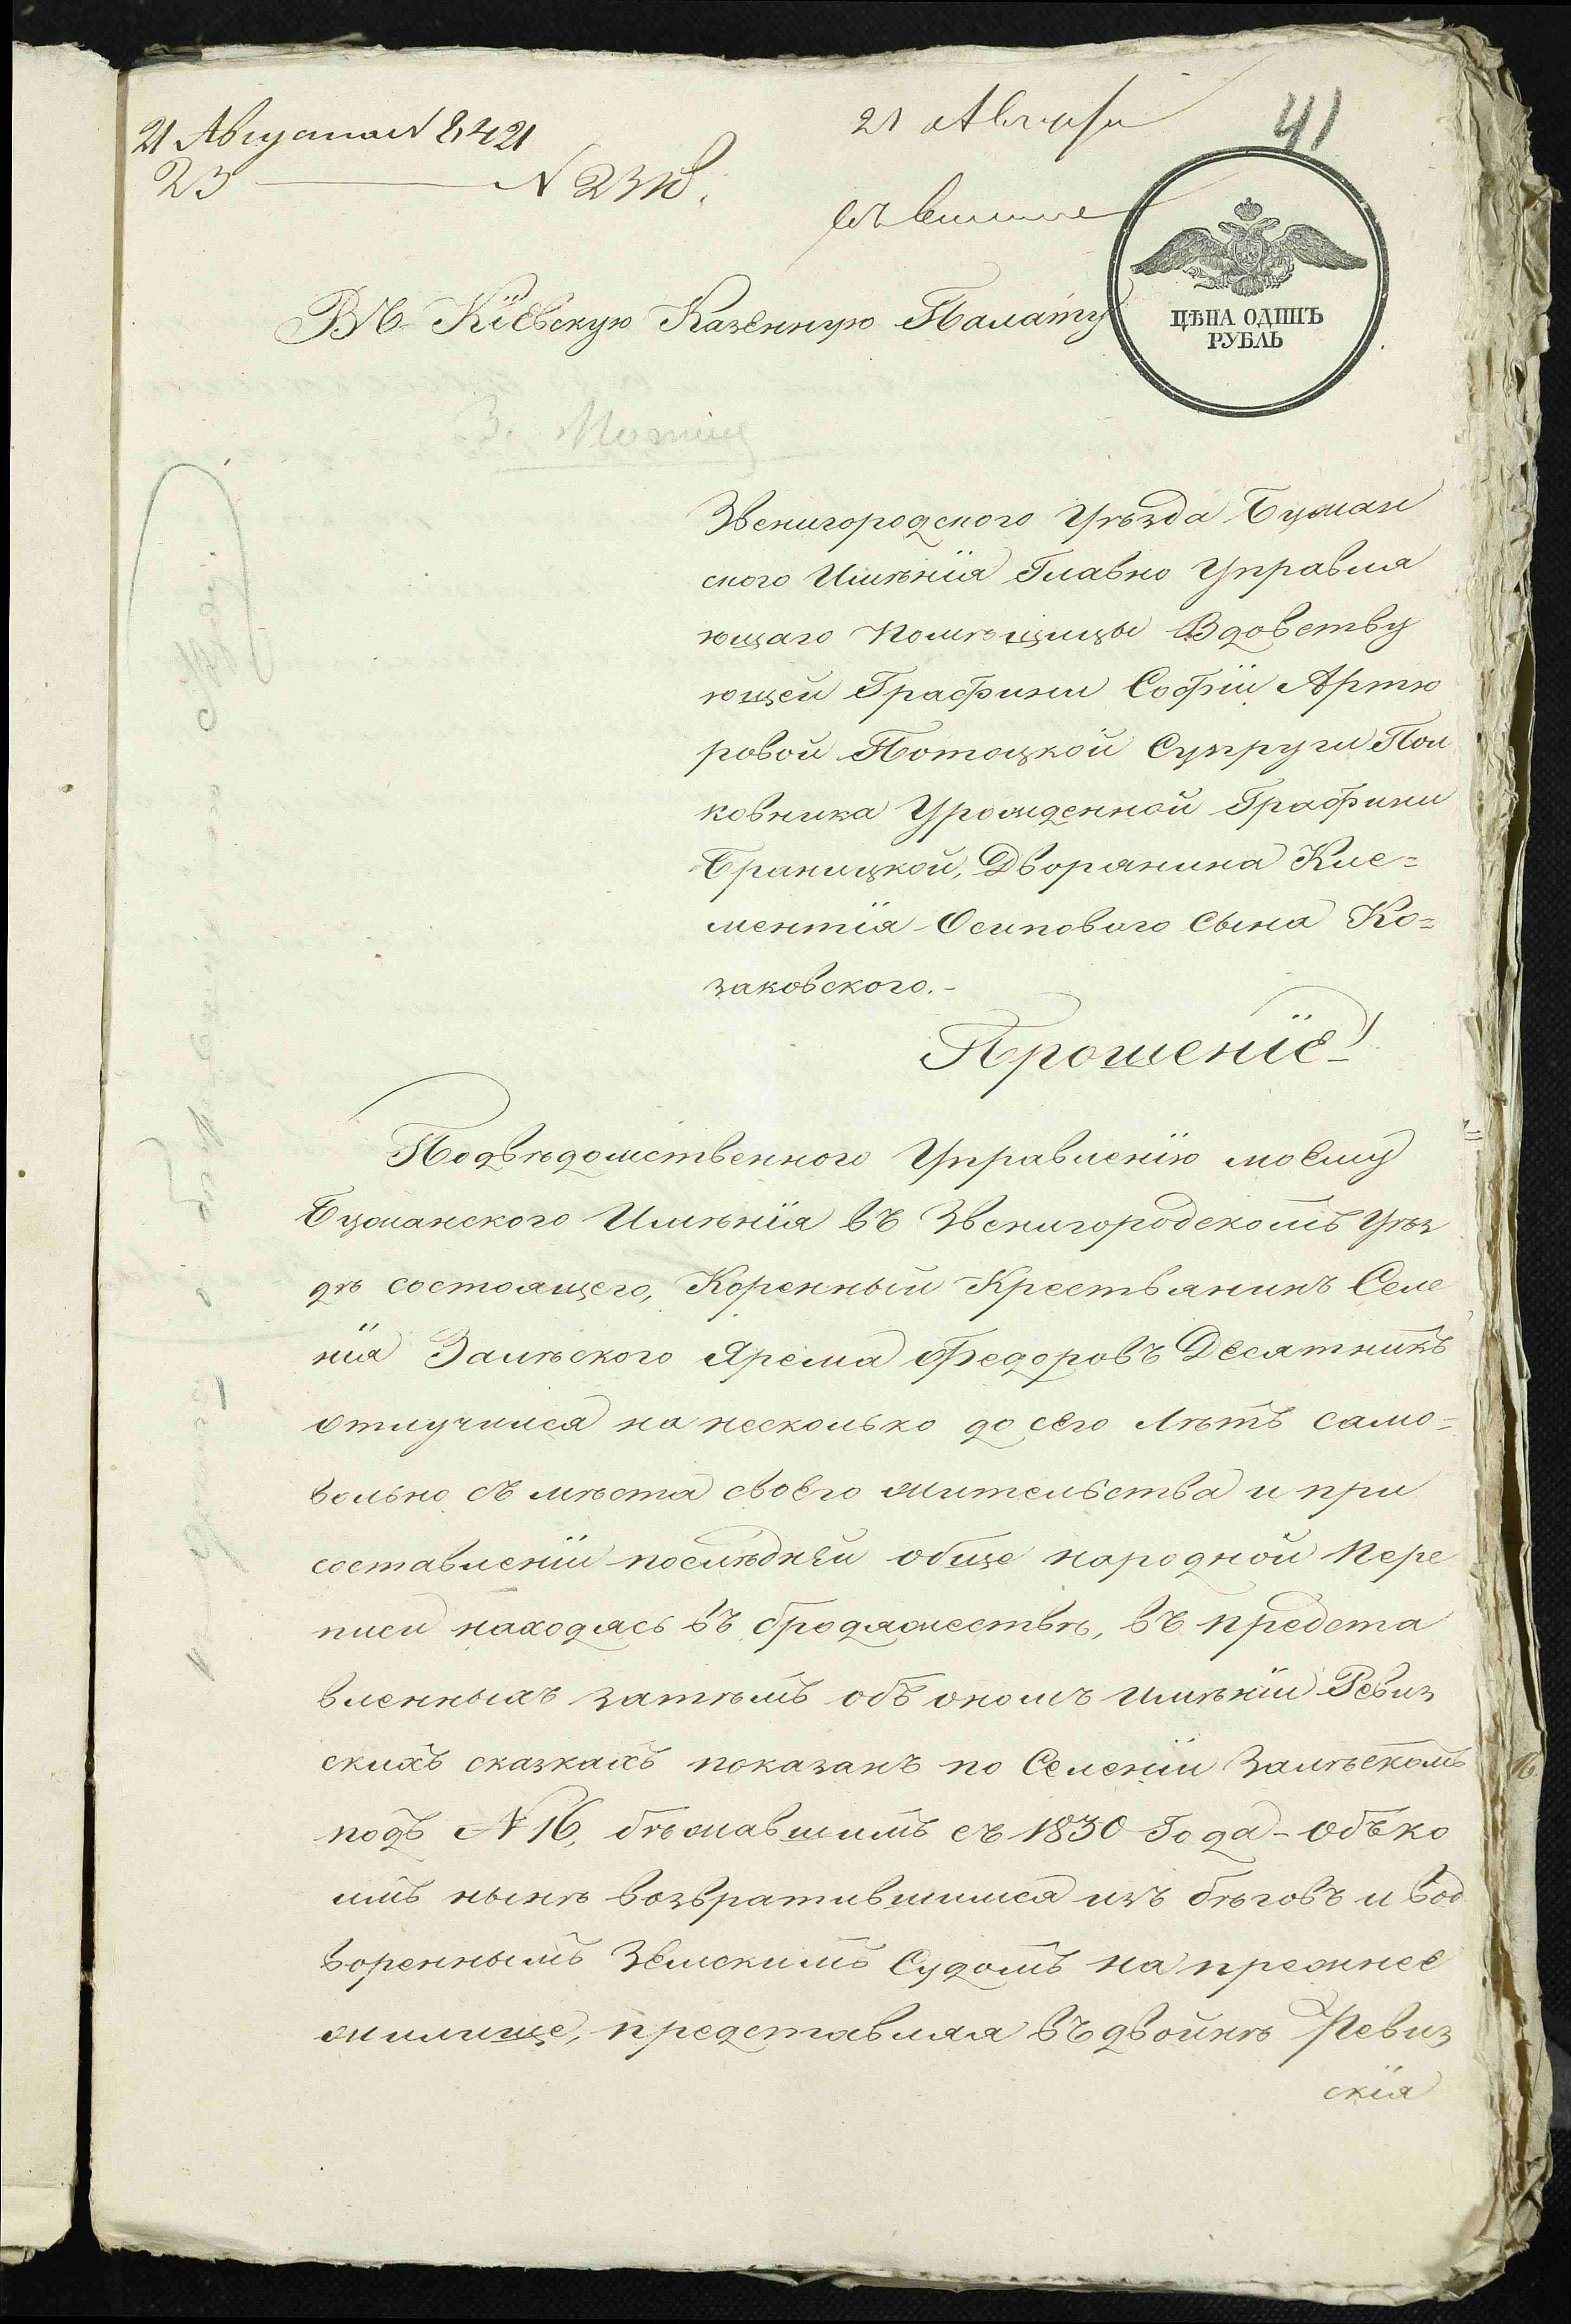 21 Августа N 8421
21 Августа
41
23 —— N
Въ Кіевскую Казенную Палату
ЦѢНА ОДИНЪ
РУБЛЬ
Звенигородского Уѣзда Бужан
ского Имѣнія Главно Управля
ющаго Помѣщицы Вдовству
ющей Графини Софіи Артю
ровой Потоцкой Супруги Пол
ковника Урожденной Графини
Браницкой, Дворянина Кле=
ментія Осипового Сына Ко=
заковского.-
Прошеніе!
Подвѣдомственного Управленію моему
Бужанского Имѣнія въ Звенигородскомъ Уѣз
дѣ состоящего, Коренный Крестьянинъ Селе
нія Залѣского Ярема Федоровъ Десятникъ
отлучился на несколько до сего Лѣтъ само=
вольно съ мѣста своего жительства и при
составленіи послѣдней обще народной Пере
писи находясь въ бродяжествѣ, въ предста
вленныхъ затѣмъ объ ономъ имѣніи Ревиз
скихъ сказкахъ показанъ по Селенію Залѣскомъ
подъ N 16, бѣжавшимъ съ 1830 Года - объ ко
имъ нынѣ возвратившимся изъ бѣговъ и вод
воренныемъ Земскимъ Судомъ на прежнее
жилище, представляя въ двойнѣ Ревиз
скія